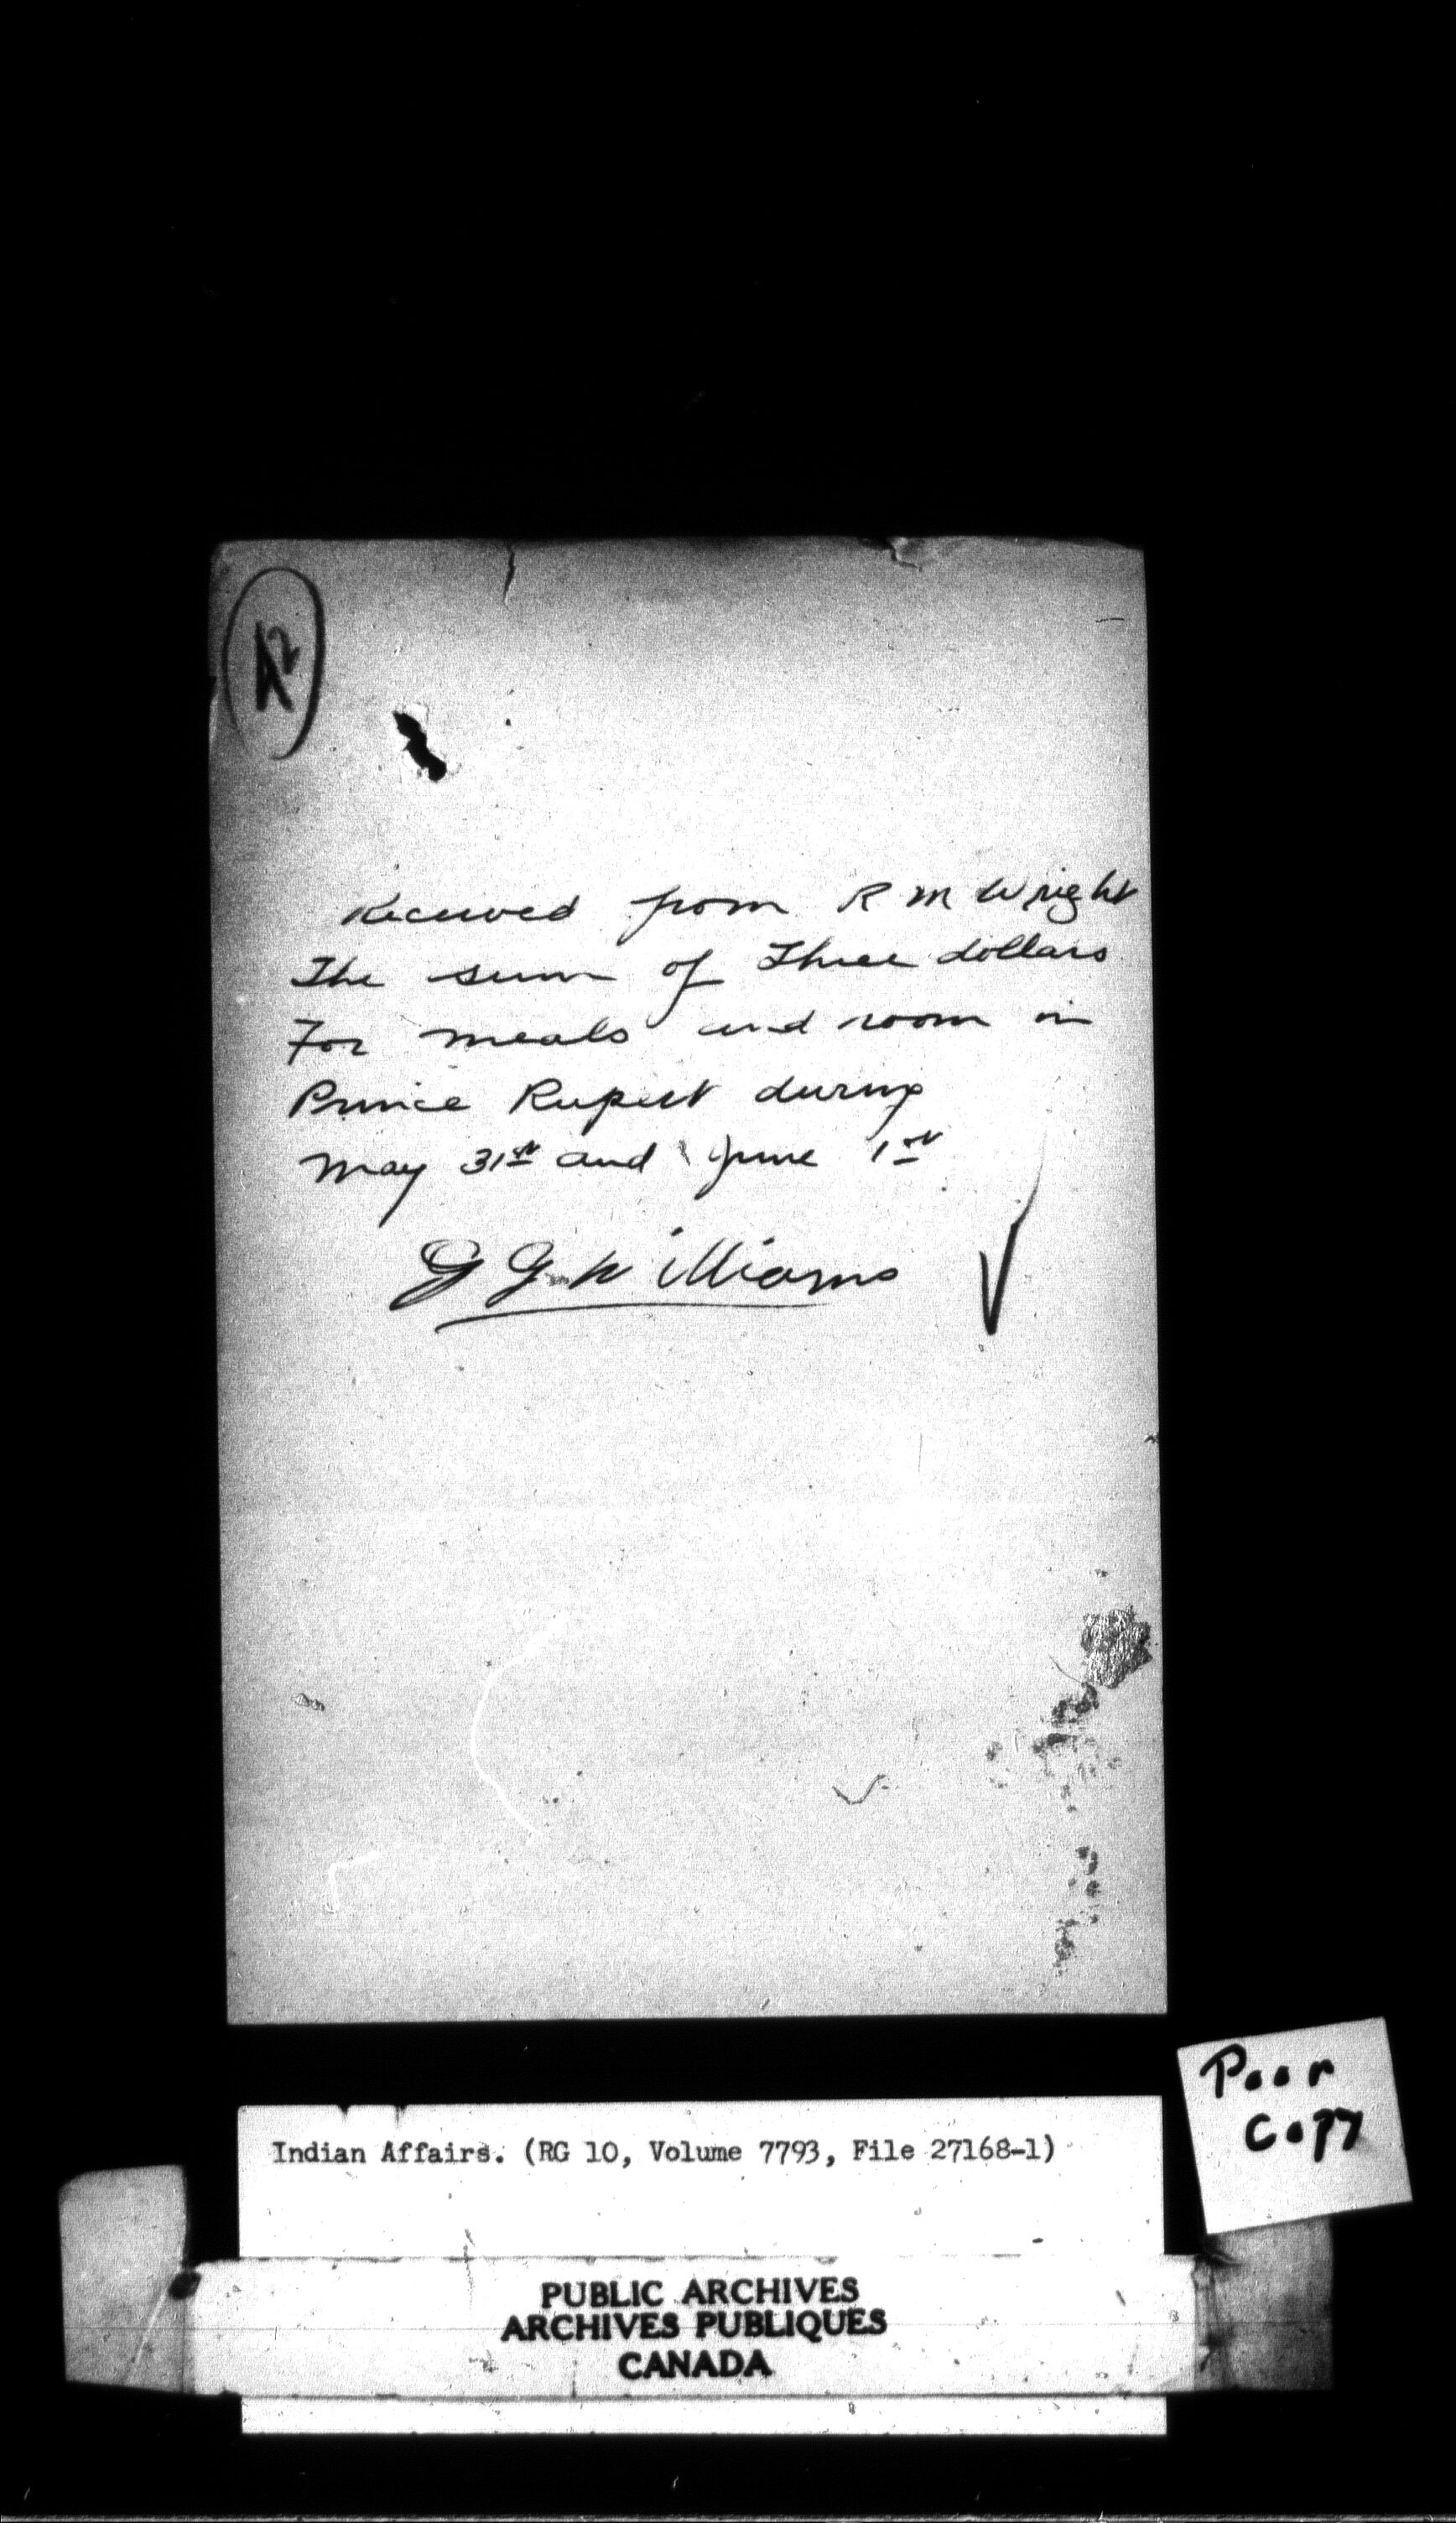 A2
Received from R M Wright
The sum of Three dollars
For meals and room in
Prince Rupert during
May 31st and June 1st
G G Williams
Poor
Copy
Indian Affairs. (RG 10, Volume 7793, File 27168-1)
PUBLIC ARCHIVES
ARCHIVES PUBLIQUES
CANADA